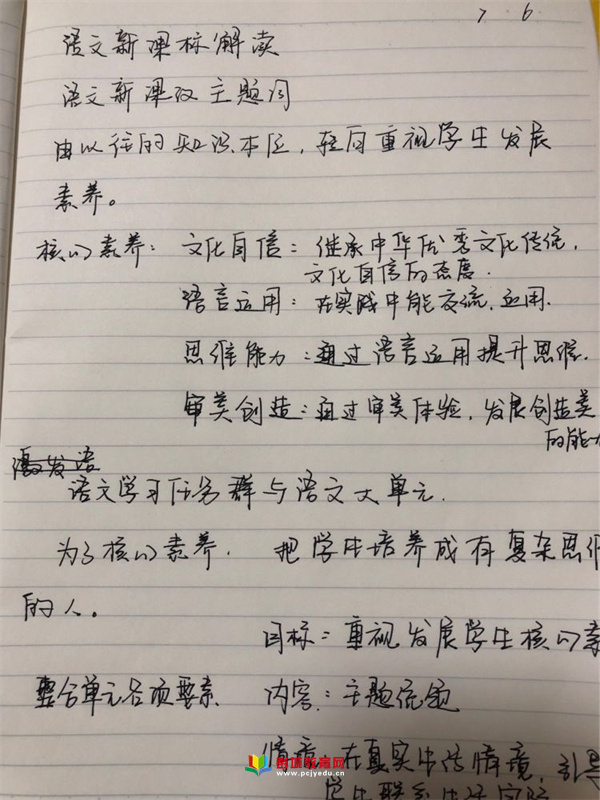 7. 6.
语文新课标解读
语文新课改主题词
由以往的知识本位,转向重视学生发展
素养。
核心素养: 文化自信: 继承中华优秀文化传统,
文化自信的态度.
语言运用: 在实践中能交流.运用.
思维能力: 通过语言运用提升思维.
审美创造: 通过审美体验,发展创造美
的能力
激发语
语文学习任务群与语文大单元.
为了核心素养. 把学生培养成有复杂思维
的人。
目标: 重视发展学生核心素
整合单元各项要素 内容: 主题统领
情境: 在真实生活情境, 引导
学生联系生活实际
教育网
www.pcjyedu.cn